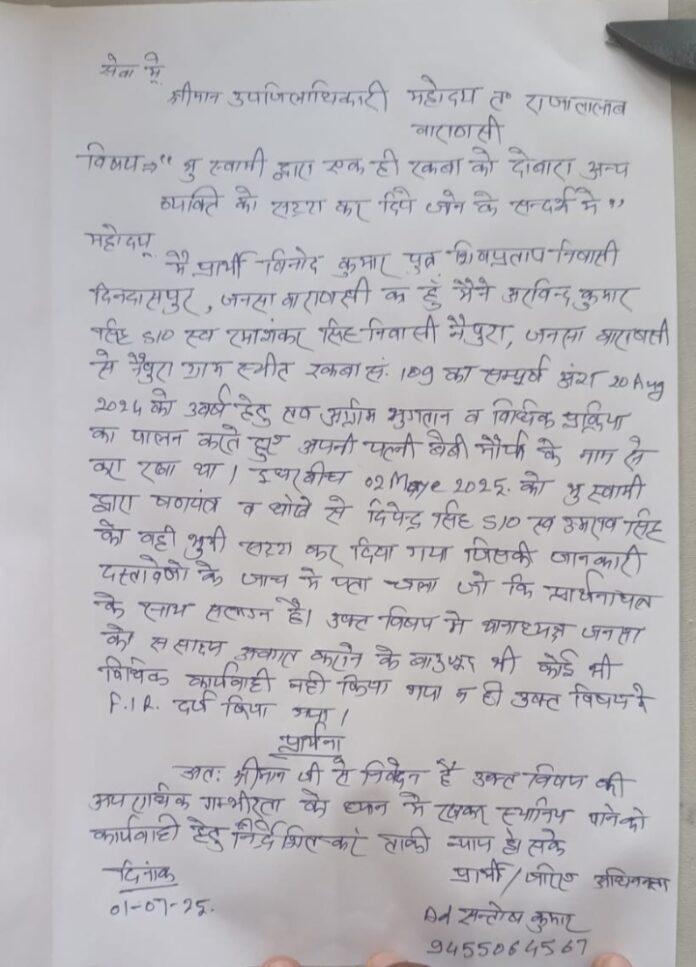 सेवा में,
श्रीमान उपजिलाधिकारी महोदय त० राजातालाब
वाराणसी
विषय:-" भु स्वामी द्वारा एक ही रकबा को दोबारा अन्य
व्यक्ति को सट्टा कर दिये जाने के सन्दर्भ में"
महोदय,
मै प्रार्थी विनोद कुमार पुत्र शिवप्रताप निवासी
दिनदासपुर, जनसा वाराणसी का हुं मैने अरविन्द कुमार
सिंह S/O स्व रमाशंकर सिंह निवासी नैपुरा, जनसा वाराणसी
से नैपुरा ग्राम स्थीत रकबा सं. 189 का सम्पुर्ण अंश 20 Aug
2024 को 3वर्ष हेतु अग्रीम भुगतान व विधिक प्रक्रिया
का पालन करते हुए अपनी पत्नी बेबी मौर्या के नाम से
करा रखा था। इधर बीच 02 Maye 2025. को भु स्वामी
द्वारा षणयंत्र व धोखे से दिपेन्द्र सिंह S/O स्व उमराव सिंह
को वही भुमी सट्टा कर दिया गया जिसकी जानकारी
दस्तावेजो के जाच में पता चला जो कि प्रार्थनापत्र
के साथ सलग्न है। उक्त विषय में थानाध्यक्ष जनसा
को स साक्ष्य अवगत कराने के बावजूद भी कोई भी
विधिक कार्यवाही नहीं किया गया न ही उक्त विषय में
F.I.R. दर्ज किया गया।
प्रार्थना
अत: श्रीमान जी से निवेदन है उक्त विषय की
अपराधिक गम्भीरता को ध्यान में रखकर स्थानिय थाने को
कार्यवाही हेतु निर्देशित करें ताकी न्याय हो सके
दिनांक
प्रार्थी / अधिवक्ता
01-07-25.
Ad सन्तोष कुमार
9455064567